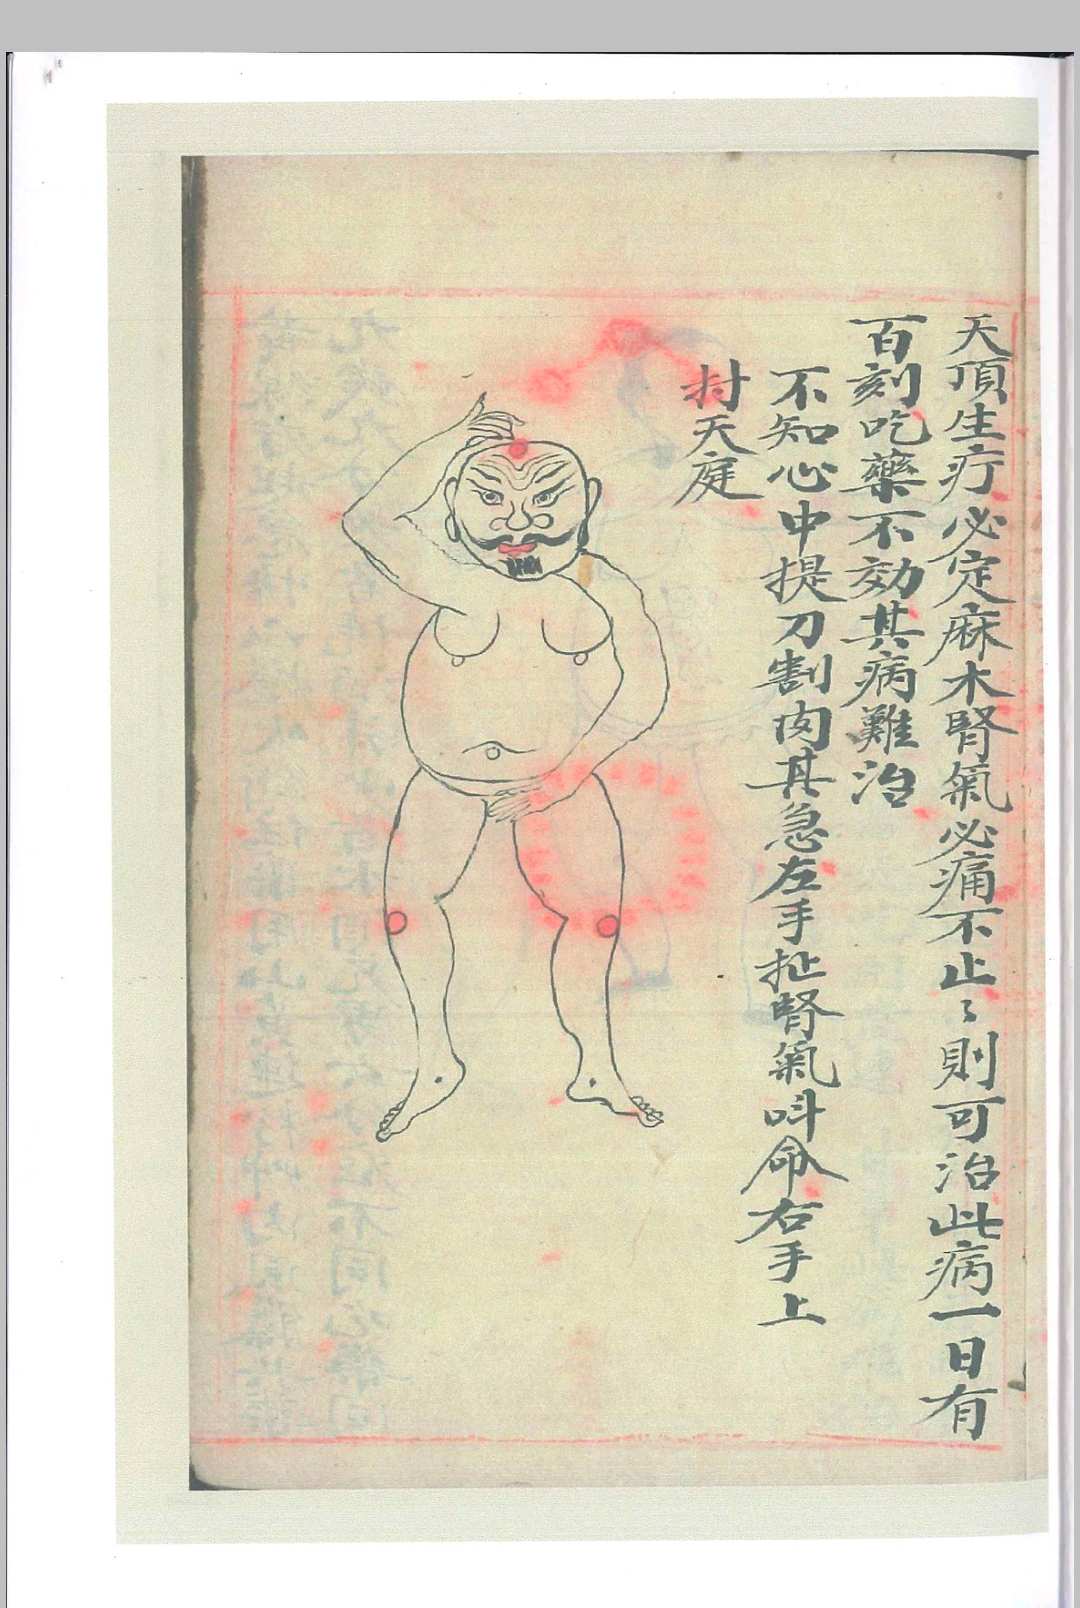 天頂生疔必定麻木腎氣必痛不止〻則可治此病一日有
百刻吃藥不効其病難治
不知心中提刀割肉其急左手扯腎氣呌命右手上
封天庭